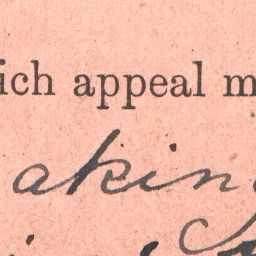 ich appeal m
aking